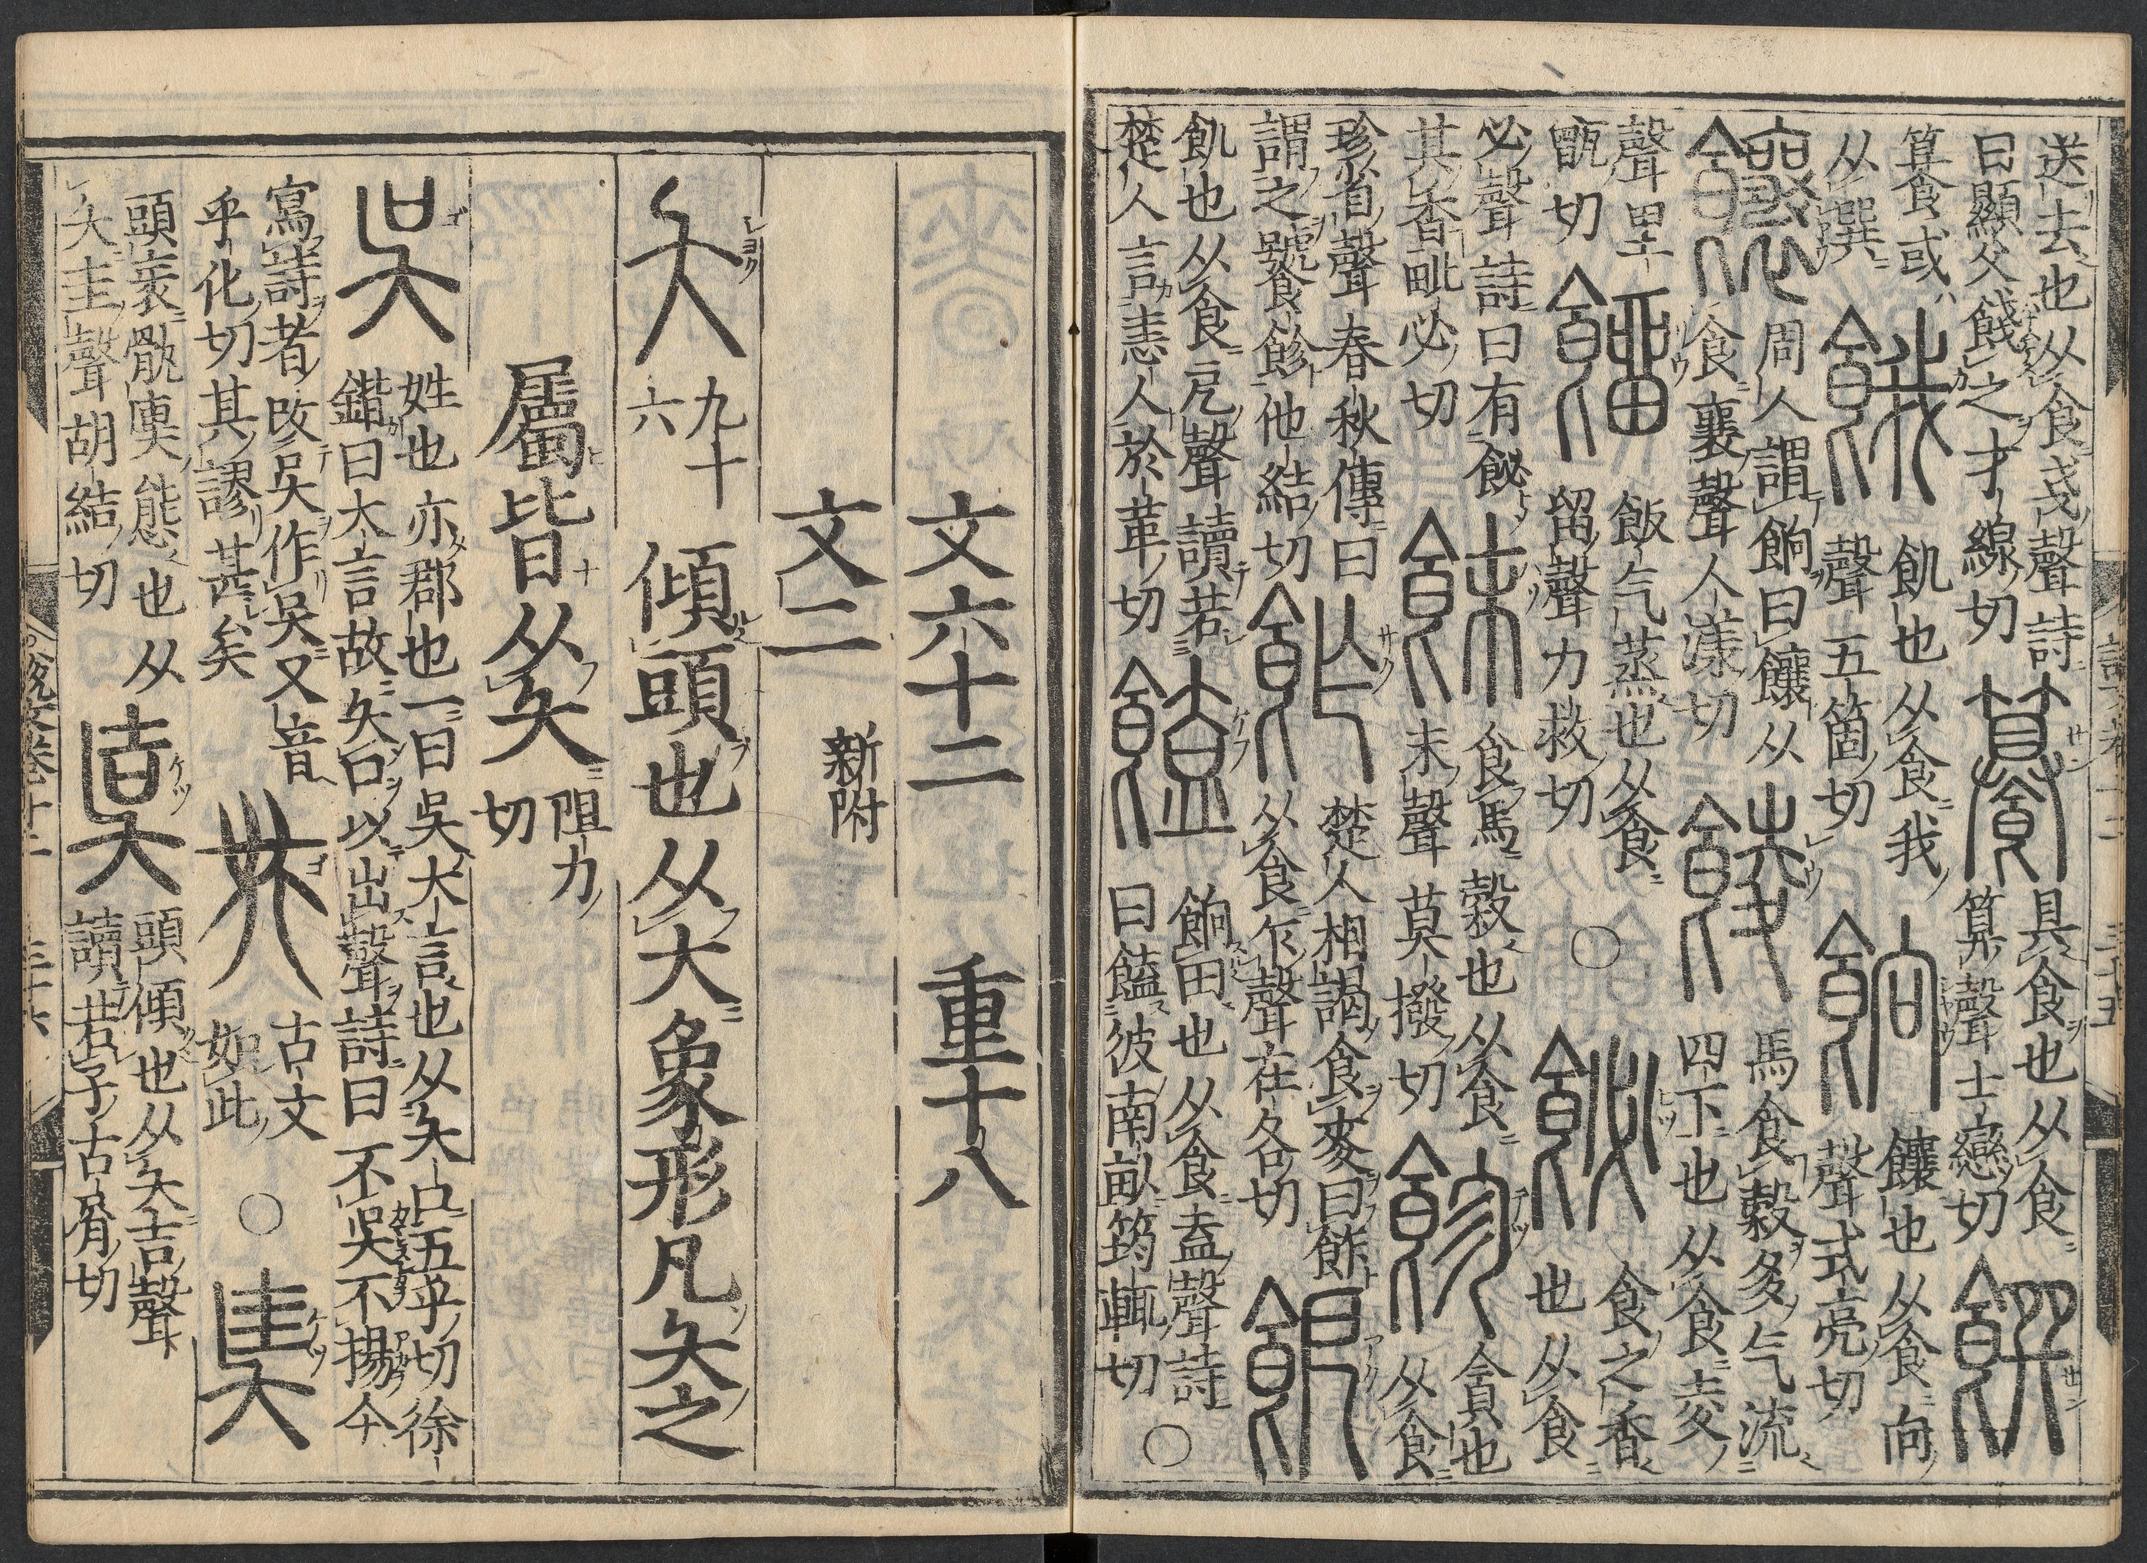 送去也从食戔聲詩
曰顯父餞之才線切
籑
具食也从食
算聲士戀切
饌
籑或
从巽
餓
飢也从食我
聲五箇切
餉
饟也从食向
聲式亮切
饟
周人謂餉曰饟从
食襄聲人漾切
餕
馬食穀多气流
四下也从食夌
聲里
甑切
餾
飯气蒸也从食
留聲力救切
○
飶
食之香
也从食
必聲詩曰有飶
其香毗必切
䬴
食馬穀也从食
末聲莫撥切
飻
貪也
从食
珍省聲春秋傳曰
謂之饕飻他結切
飵
楚人相謁食麥曰飵
从食乍聲在各切
飢也从食戹聲讀若
楚人言恚人於革切
饁
餉田也从食盍聲詩
曰饁彼南畝筠輒切
○
文六十二 重十八
文二 新附
夨 九十六 傾頭也从大象形凡夨之
屬皆从夨 阻力切
吳
姓也亦郡也一曰吳大言也从夨口五乎切徐
鍇曰大言故夨口以出聲詩曰不吳不揚今
寫詩者改吳作吴又音
乎化切其謬甚矣
古文
如此
○
奊
頭衺骫奊態也从
夨圭聲胡結切
頭傾也从夨吉聲
讀若孑古屑切
說文卷十二 三十六